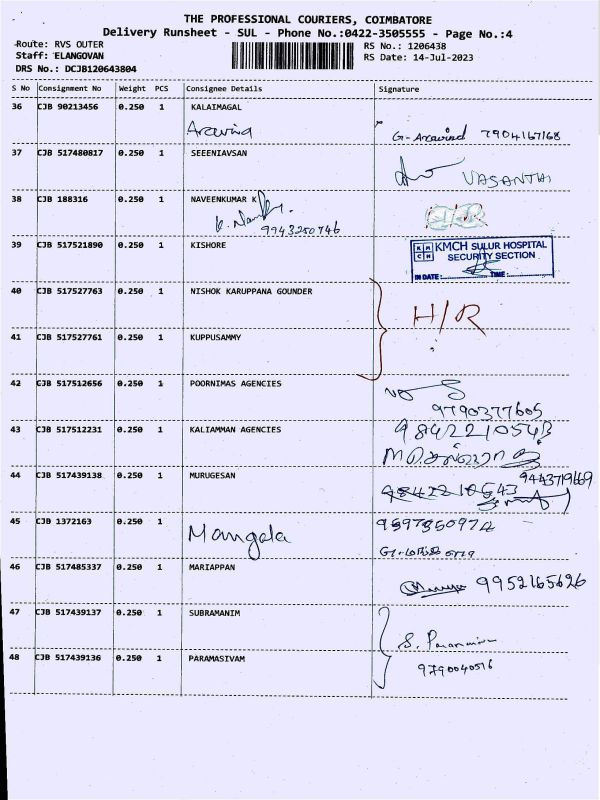 THE PROFESSIONAL COURIERS, COIMBATORE
Delivery Runsheet - SUL - Phone No.:0422-3505555 - Page No.:4
Route: RVS OUTER
Staff: ELANGOVAN
DRS No.: DCJB120643804
RS No.: 1206438
RS Date: 14-Jul-2023
S No Consignment No Weight PCS Consignee Details Signature
36 CJB 90213456 0.250 1 KALAIMAGAL
Aravind G-Aravind 7904167168
37 CJB 517480817 0.250 1 SEEENIAVSAN
VASANTHI
38 CJB 188316 0.250 1 NAVEENKUMAR K
9943250746
39 CJB 517521890 0.250 1 KISHORE
KMCH SULUR HOSPITAL
SECURITY SECTION
IN DATE: TIME:
40 CJB 517527763 0.250 1 NISHOK KARUPPANA GOUNDER
H/R
41 CJB 517527761 0.250 1 KUPPUSAMMY
42 CJB 517512656 0.250 1 POORNIMAS AGENCIES
9790377605
43 CJB 517512231 0.250 1 KALIAMMAN AGENCIES
9842210543
44 CJB 517439138 0.250 1 MURUGESAN
9443719669
45 CJB 1372163 0.250 1
Mangala
9597950974
46 CJB 517485337 0.250 1 MARIAPPAN
9952165626
47 CJB 517439137 0.250 1 SUBRAMANIM
48 CJB 517439136 0.250 1 PARAMASIVAM
9790040516